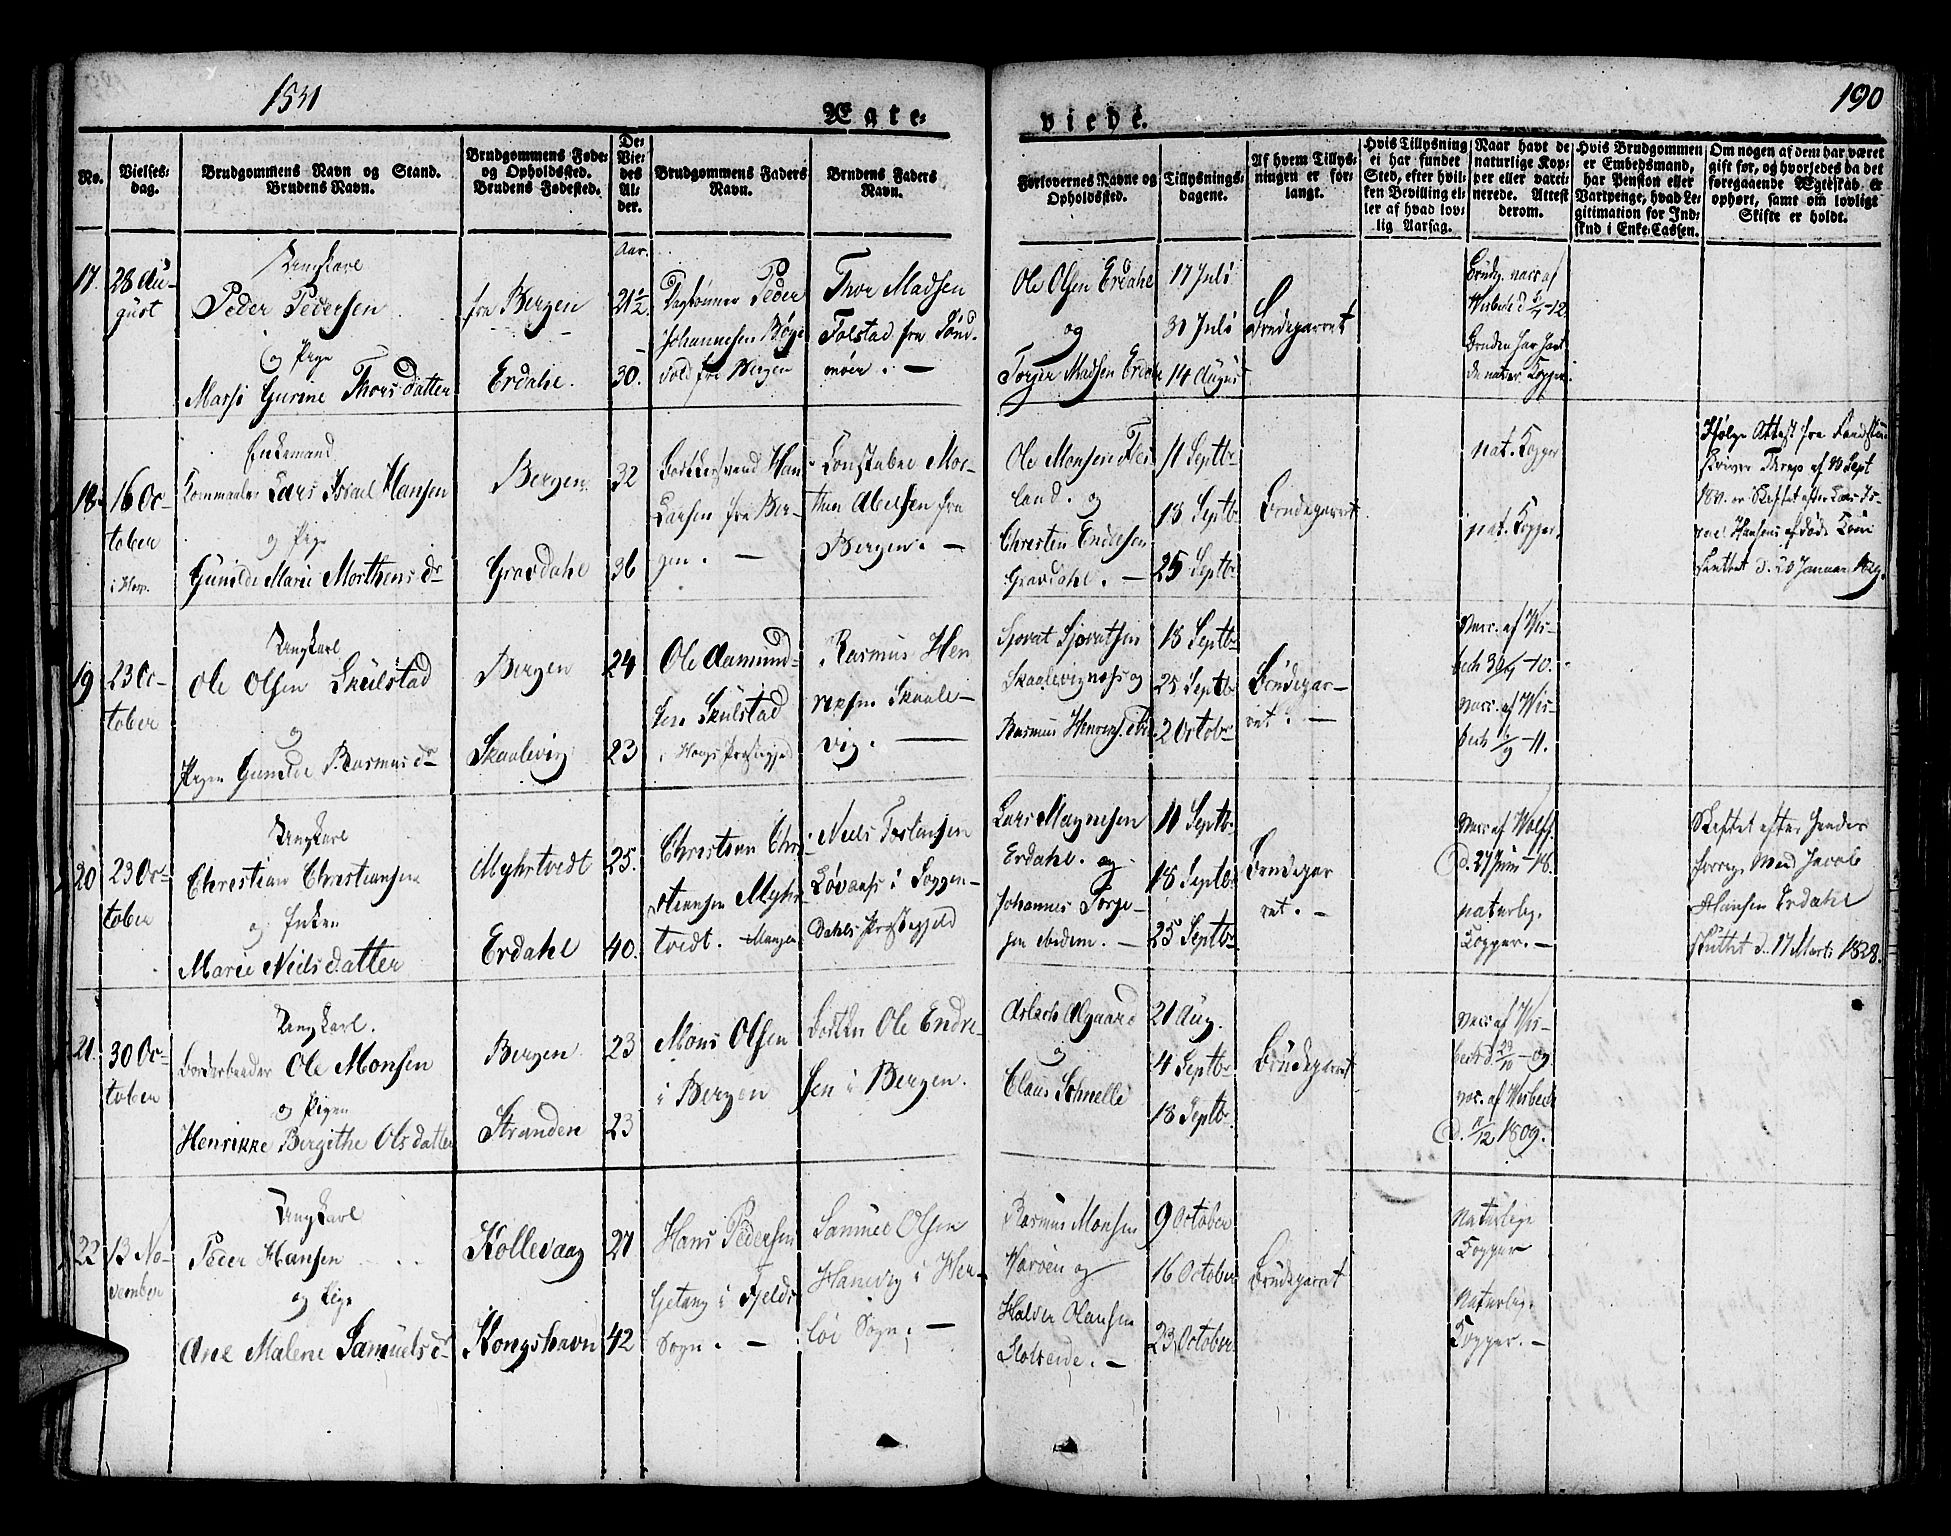 1831
190
Egte-
viede.
No.
Vielses-
dag.
Brudgommens Navn og Stand.
Brudens Navn.
Brudgommens Føde-
og Opholdssted.
Brudens Fødested.
De
Vie-
des
Al-
der.
Brudgommens Faders
Navn.
Brudens Faders
Navn.
Forlovernes Navne og
Opholdssted.
Tillysnings-
dagene.
Af hvem Tillys-
ningen er for-
langt.
Hvis Tillysning
ei har fundet
Sted, efter hvil-
ken Bevilling el-
ler af hvad lov-
lig Aarsag.
Naar havt de
naturlige Kop-
per eller vacci-
nerede. Attest
derom.
Hvis Brudgommen
er Embedsmand,
har Pension eller
Vartpenge, hvad Le-
gitimation for Ind-
skud i Enke-Cassen.
Om nogen af dem har været
gift før, og hvorledes da det
foregaaende Egteskab er
ophørt, samt om lovligt
Skifte er holdt.
Aar.
17.
28 Au-
gust
Ungkarl
Peder Pedersen
og Pige
Thorsdatter
fra Bergen
Erdahl.
21½
30.
Peder
Johannesen
vold fra Bergen
Thor Madsen
Tolstad fra Sønd-
møer. —
Ole Olsen Erdahl
og
Torger Madsen Erdahl
17 Juli
31 Juli
14 August
Brudeparret
Brudg. vacc. af
Wisbech d.
Bruden har havt
de natur. Kopper.
18.
16 Oc-
tober
Enkemand
Lars Israel Hansen
og Pige
Gunilde Marie Morthens Dr
Bergen
Gravdahl
32
36
Hans
Larsen fra Ber-
gen. —
Constabel Mor-
then Abelsen fra
Bergen. —
Ole Monsen
land. og
Christen Endresen
Gravdahl. —
11 Septbr
18 Septbr
25 Septbr
Brudeparret
nat. Kopper
nat. Kopper.
Ifølge Attest fra
Skriver af 10 Sept
er Skiftet efter Lars Is-
rael Hansens afdøde Kone
sluttet d. 20 Januar 1829.
19
23 Oc-
tober
Ungkarl
Ole Olsen Skulstad
og
Pigen Gunilde Rasmus Dr
Bergen
Skaalevig
24
23
Ole Aamund-
sen Skulstad
i Hougs Præstegjeld
Rasmus Hen
riksen Skaale-
vig. —
Sjovat Sjovatsen
Skaalevignæss og
Rasmus
18 Septbr
25 Septbr
2 Octobr
Brudepar-
ret. —
vacc. af Wis-
bech
vacc. af Wis-
bech
20
23 Oc-
tober
Ungkarl
Christian Christiansen
og Enken
Marie Nielsdatter
Myhrtvedt
Erdahl
25.
40.
Christian Chri-
stiansen Myhr-
tvedt.
Niels Torstensen
Løvaas i Soggen-
dahls Præstegjeld
Lars Magnesen
Erdahl. og
Johannes Torge-
sen ibidem. —
11 Septbr
18 Septbr
25 Septbr
Brudepar
ret. —
vacc. af
d. 27 Juni 18
naturlig.
Kopper. —
Skiftet efter hendes
forrige Mand Jacob
Hansen Erdahl
sluttet d. 17 Marts 1828.
21.
30 Oc-
tober
Ungkarl.
Ole Monsen
og Pigen
Henrikke Bergithe Olsdatter
Bergen
Stranden
23
23
Mons Olsen
i Bergen
Ole Endre-
sen i Bergen.
Aslach Algaard
og
Claus Schnelle
21 Aug.
4 Septbr
18 Septbr.
Brudeparret
vacc. af Wis-
bech d. 29/10 - 09
vac. af Wisbech
d. 11/12 1809.
22
13 No-
vember
Ungkarl
Peder Hansen
og Pige
Ane Malene Samuels Dr
Kollevaag
Kongshavn
27
42
Hans Pedersen
Getang i Fjelds
Sogn. —
Samuel Olsen
Hanevig i Her-
løe Sogn. —
Rasmus Monsen
Harøen og
Halver Olansen
9 October
16 October
23 October
Brudeparret
Naturlige
Kopper
Naturlig.
Kopper. —